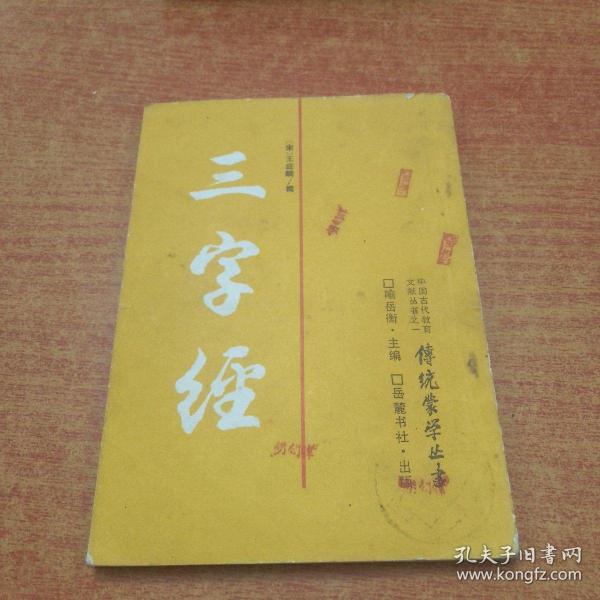 三字經
〔宋〕王应麟／撰
中国古代教育
文献丛书之一
傳統蒙学丛書
□喻岳衡·主编 □岳麓书社·出版
孔夫子旧书网
www.kongfz.com